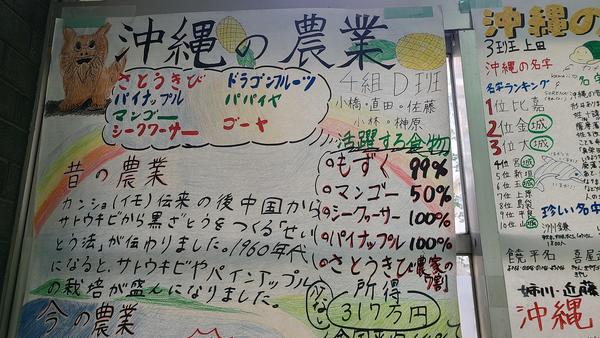 沖縄の農業
さとうきび ドラゴンフルーツ
パイナップル パパイヤ
マンゴー
シークワーサー ゴーヤ
4組D班
小橋・直田・佐藤
小林・榊原
活躍する食物
○もずく 99%
○マンゴー 50%
○シークワーサー 100%
○パイナップル 100%
○さとうきび農家の7割
所得
少ない
317万円
昔の農業
カンショ(イモ)伝来の後中国から
サトウキビから黒ざとうをつくる"せい
とう法"が伝わりました。1960年代
になると、サトウキビやパインアップル
の栽培が盛んになりました。
今の農業
沖縄の
3班 上田
沖縄の名字
名字ランキング
1位 比嘉
2位 金城
3位 大城
4位 宮城
5位 新垣
6位 玉城
7位 上原
8位 島袋
9位 平良
10位 山城
珍しい名字
饒平名
喜屋
姉川・近藤
沖縄